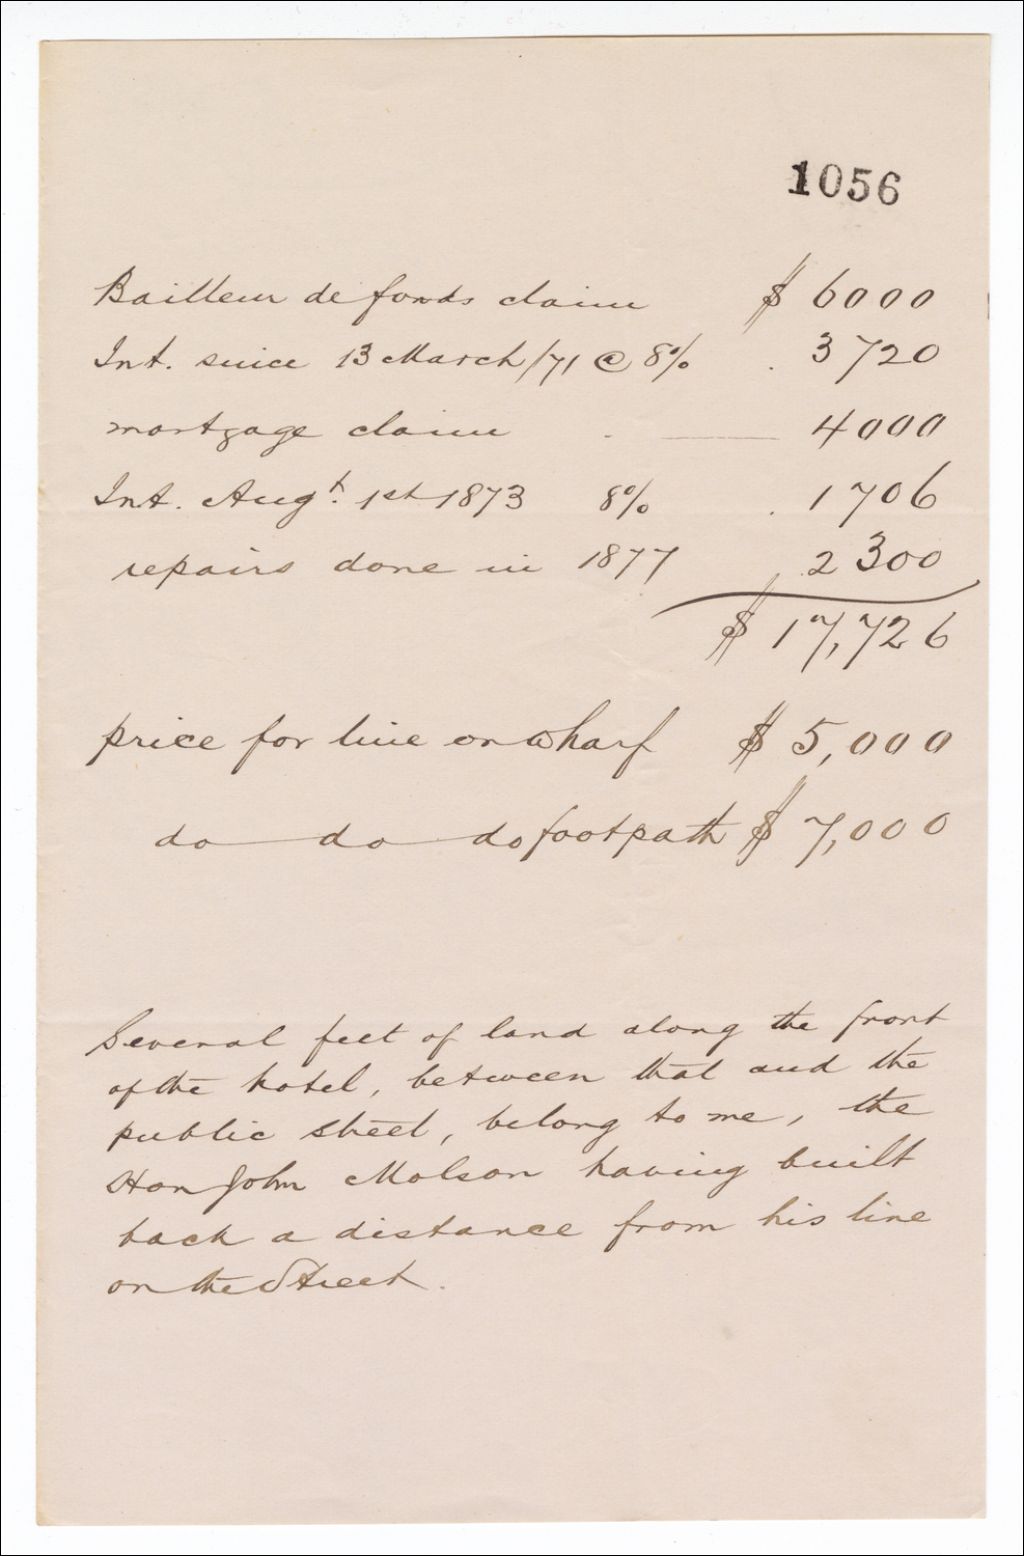 1056
Bailleur de fonds claim $ 6000
Int. since 13 March/71 @ 8% . 3720
mortgage claim . — 4000
Int. Augt. 1st 1873 8% . 1706
repairs done in 1877 2300
$ 17,726
price for line on wharf $ 5,000
do — do — do footpath $ 7,000
Several feet of land along the front
of the hotel, between that and the
public street, belong to me, the
Hon John Molson having built
back a distance from his line
on the Street.